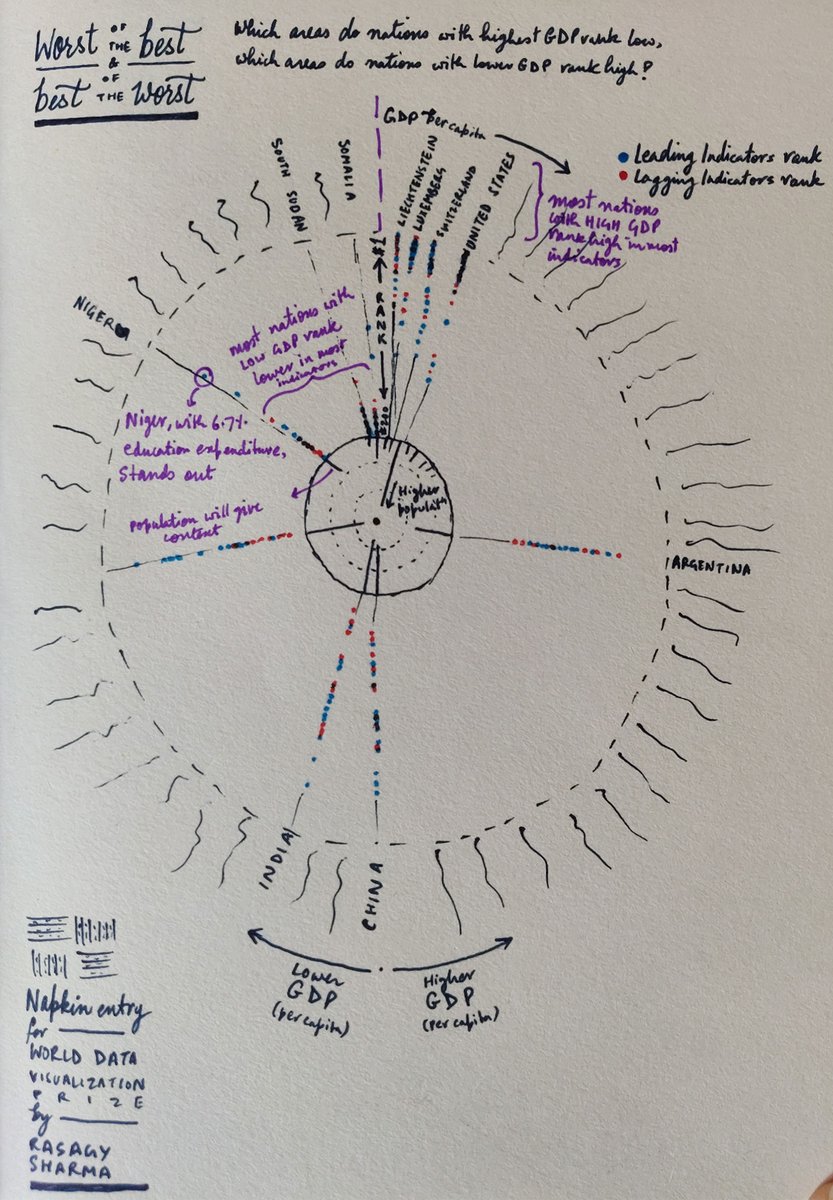 Worst OF THE best
&
best OF THE worst
Which areas do nations with highest GDP rank low,
which areas do nations with lower GDP rank high?
GDP Per capita
Leading Indicators rank
Lagging Indicators rank
SOUTH SUDAN
SOMALIA
LIECHTENSTEIN
LUXEMBERG
SWITZERLAND
UNITED STATES
most nations
with HIGH GDP
rank high in most
indicators
#1
RANK
NIGER
most nations with
LOW GDP rank
lower in most
indicators
Niger, with 6.7%
education expenditure,
Stands out
population will give
context
Higher
ARGENTINA
INDIA
CHINA
Lower
GDP
(per capita)
Higher
GDP
(per capita)
Napkin entry
for
WORLD DATA
VISUALIZATION
PRIZE
by
RASAGY
SHARMA